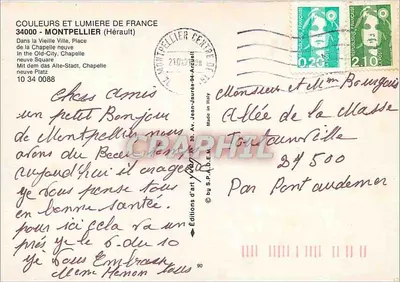 COULEURS ET LUMIERE DE FRANCE
34000 - MONTPELLIER (Hérault)
Dans la Vieille Ville, Place
de la Chapelle neuve
In the old-City, Chapelle
neuve Square
Mit dem das alte-Stadt, Chapelle
neuve Platz
10 34 0088
Chers amis
un petit Bonjour
de Montpellier nous
avons du Beau
aujourd'hui il
je vous pense tous
en bonne santé.
pour ici cela va un
près je le 6 du 10
je vous Embrasse
Meme Henon tous
MONTPELLIER CENTRE
0,20
2,10
Monsieur et Mme Bourgeais
Allée de la Masse
Toutainville
27500
Par Pont audemer
Editions d'art
90, Av. Jean-Jaurès-St-Arcueil
© by S.P.A.D.E.M.
Made in Italy
CARPHIL
90